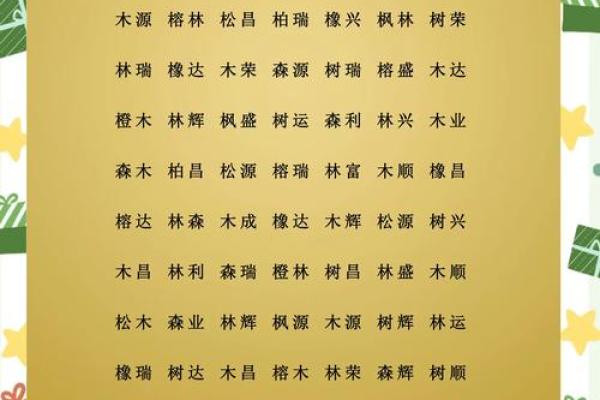 木源 榕林 松昌 柏瑞 橡兴 枫林 树荣
林瑞 橡达 木荣 森源 树瑞 榕盛 木达
橙木 林辉 枫盛 树运 森利 林兴 木业
森木 柏昌 松源 榕瑞 林富 木顺 橡昌
榕达 林森 木成 橡达 木辉 松源 树兴
木昌 林利 森瑞 橙林 树昌 林盛 木顺
松木 森业 林辉 枫源 木源 树辉 林运
橡瑞 树达 木昌 榕木 林荣 森辉 树顺